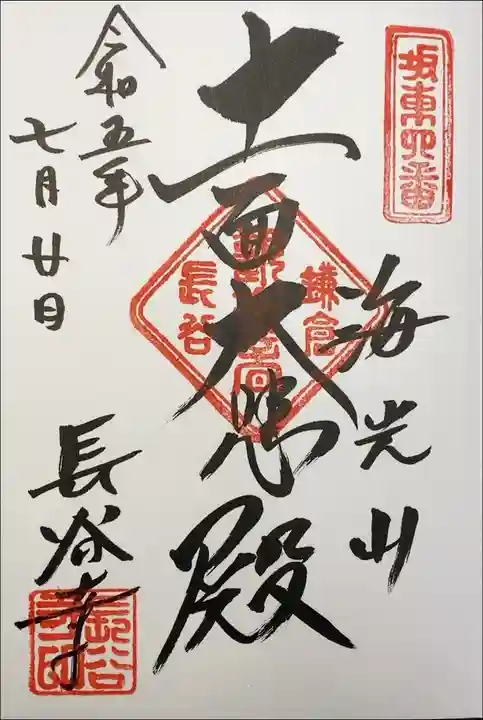 坂東四番
海光山
十一面大悲殿
鎌倉
観世音
長谷
長谷寺
令和五年
七月廿日